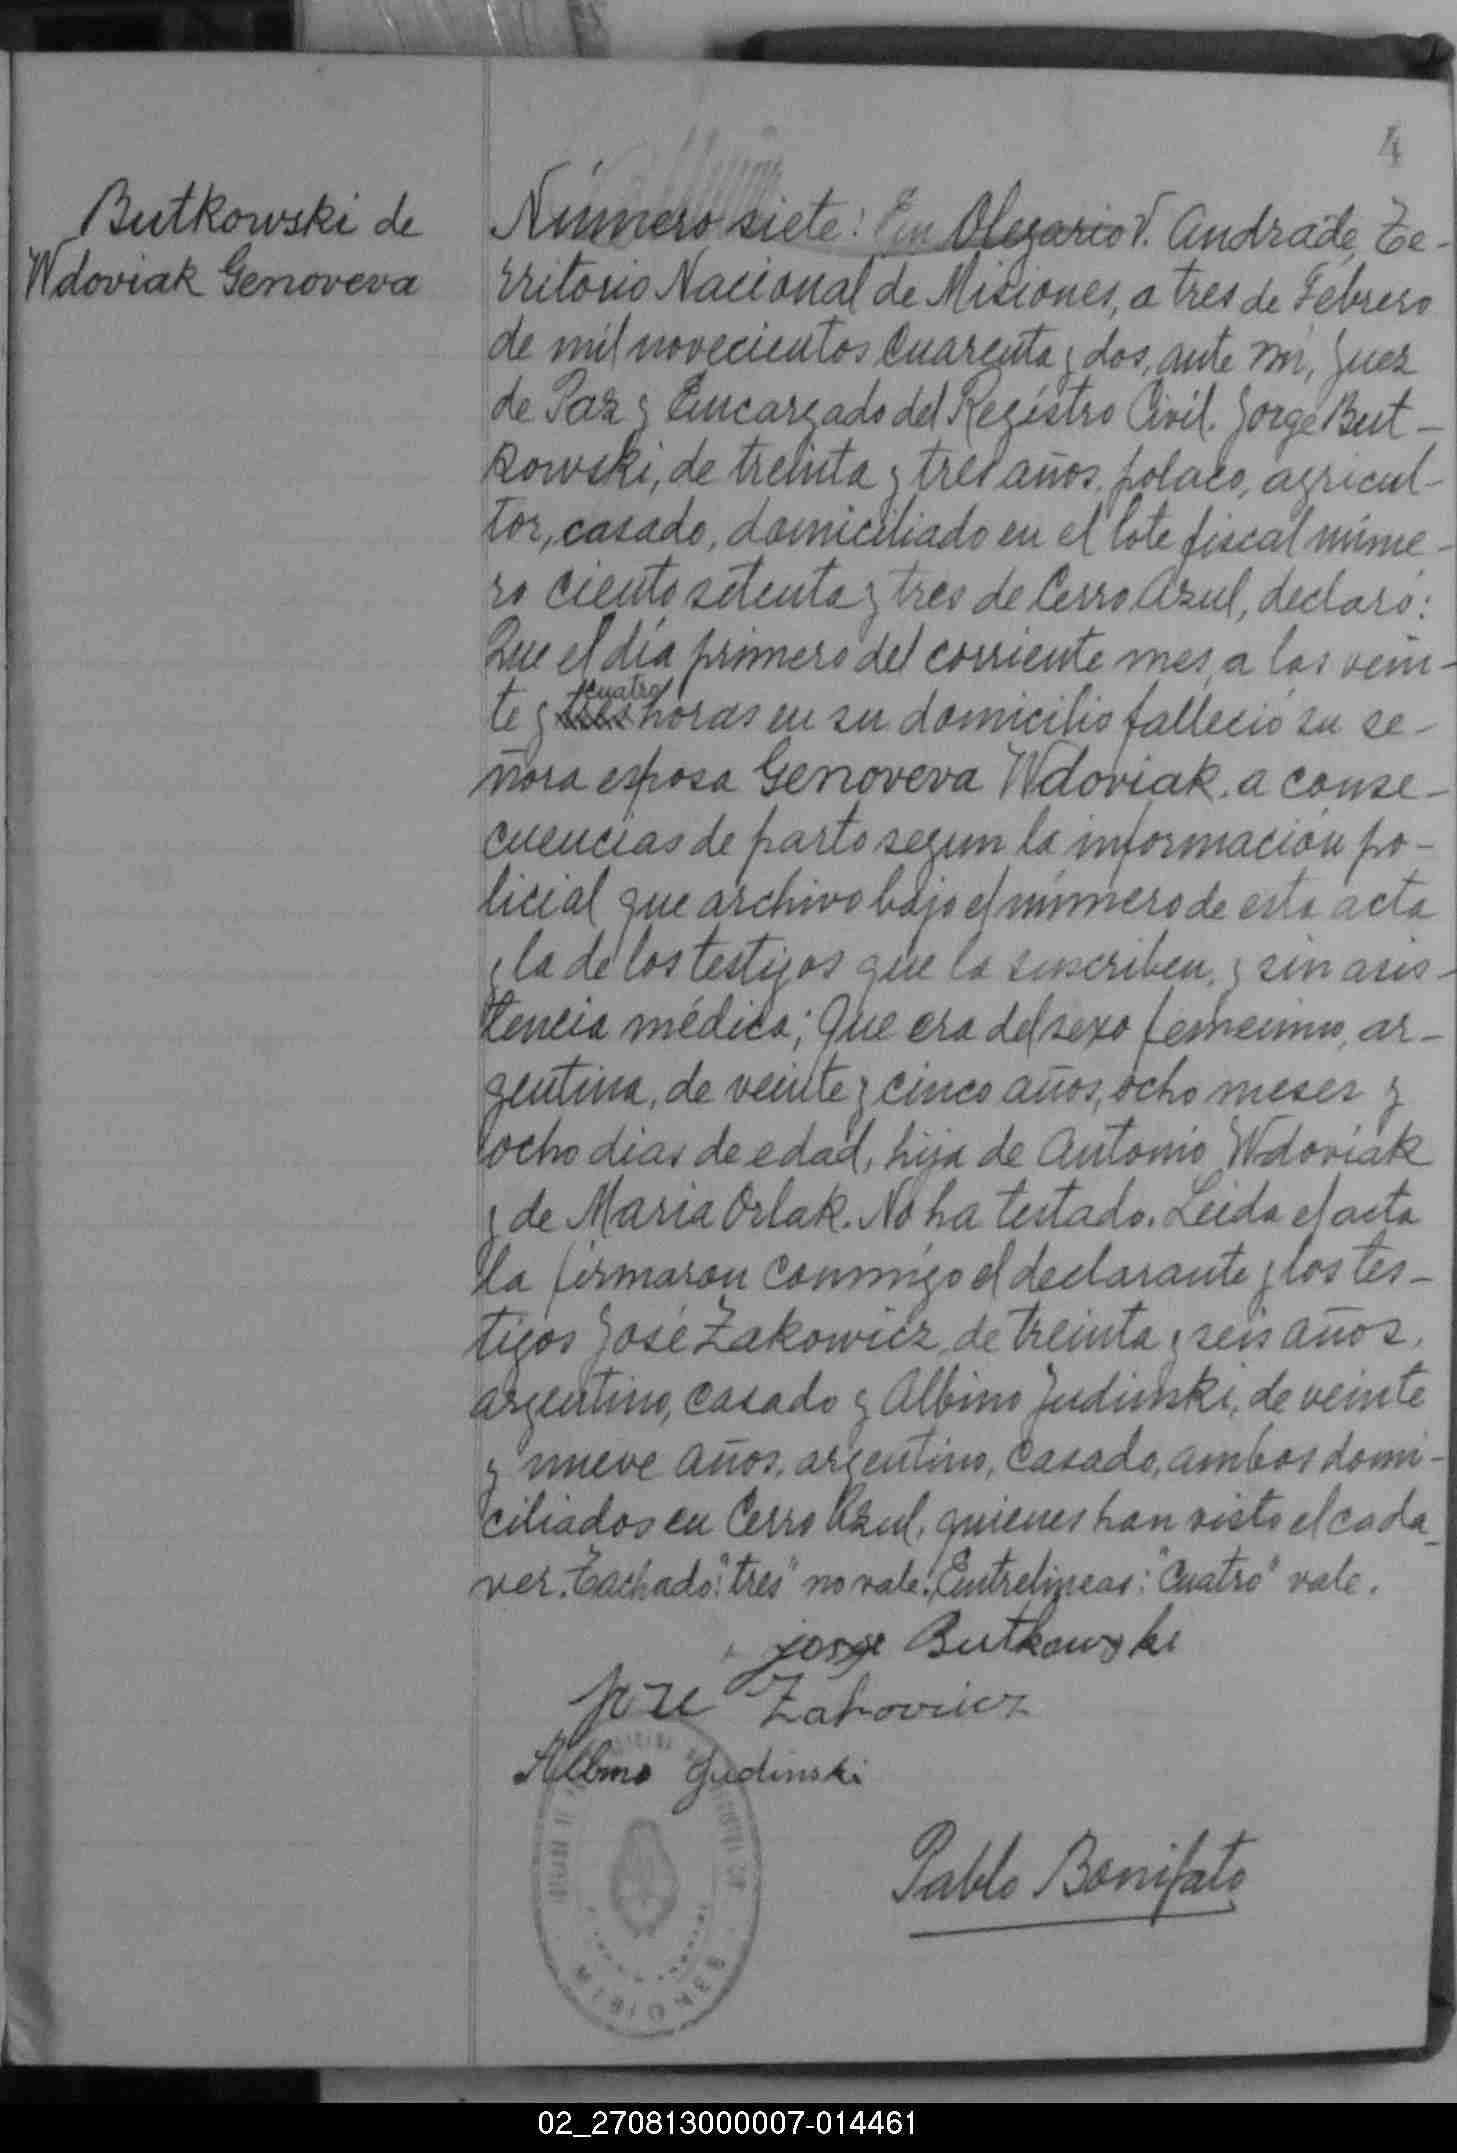 4
Butkowski de
Wdoviak Genoveva
Número siete: En Olegario V. Andrade, Te-
rritorio Nacional de Misiones, a tres de Febrero
de mil novecientos cuarenta y dos, ante mí, Juez
de Paz y Encargado del Registro Civil. Jorge But-
kowski, de treinta y tres años, polaco, agricul-
tor, casado, domiciliado en el lote fiscal núme-
ro ciento setenta y tres de Cerro Azul, declaró:
Que el día primero del corriente mes, a las vein-
te y tres cuatro horas en su domicilio falleció su se-
ñora esposa Genoveva Wdoviak, a conse-
cuencias de parto segun la información po-
licial que archivo bajo el número de esta acta
y la de los testigos que la suscriben, y sin asis-
tencia médica; Que era del sexo femenino, ar-
gentina, de veinte y cinco años, ocho meses y
ocho dias de edad, hija de Antonio Wdoviak
y de Maria Orlak. No ha testado. Leida el acta
la firmaron conmigo el declarante y los tes-
tigos José Zakowicz, de treinta y seis años,
argentino, casado y Albino Judinski, de veinte
y nueve años, argentino, casado, ambos domi-
ciliados en Cerro Azul, quienes han visto el cada-
ver. Tachado: "tres" no vale. Entrelineas: "cuatro" vale.
jorge Butkowski
Jose Zakovicz
Albino Judinski
Pablo Bonifato
MISIONES
02_270813000007-014461